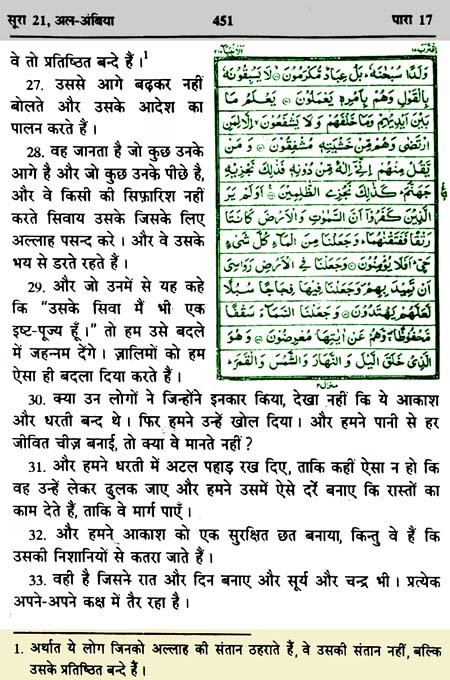 सूरा 21, अल-अंबिया 451 पारा 17
वे तो प्रतिष्ठित बन्दे हैं।¹
27. उससे आगे बढ़कर नहीं
बोलते और उसके आदेश का
पालन करते हैं।
28. वह जानता है जो कुछ उनके
आगे है और जो कुछ उनके पीछे है,
और वे किसी की सिफ़ारिश नहीं
करते सिवाय उसके जिसके लिए
अल्लाह पसन्द करे। और वे उसके
भय से डरते रहते हैं।
29. और जो उनमें से यह कहे
कि “उसके सिवा मैं भी एक
इष्ट-पूज्य हूँ।” तो हम उसे बदले
में जहन्नम देंगे। ज़ालिमों को हम
ऐसा ही बदला दिया करते हैं।
وَلَدًا سُبْحٰنَهٗ ؕ بَلْ عِبَادٌ مُّكْرَمُوْنَ ۙ لَا يَسْبِقُوْنَهٗ
بِالْقَوْلِ وَهُمْ بِاَمْرِهٖ يَعْمَلُوْنَ ۞ يَعْلَمُ مَا
بَيْنَ اَيْدِيْهِمْ وَمَا خَلْفَهُمْ وَلَا يَشْفَعُوْنَ ۙ اِلَّا لِمَنِ
ارْتَضٰى وَهُمْ مِّنْ خَشْيَتِهٖ مُشْفِقُوْنَ ۞ وَمَنْ
يَّقُلْ مِنْهُمْ اِنِّيْۤ اِلٰهٌ مِّنْ دُوْنِهٖ فَذٰلِكَ نَجْزِيْهِ
جَهَنَّمَ ؕ كَذٰلِكَ نَجْزِي الظّٰلِمِيْنَ ۞ اَوَلَمْ يَرَ
الَّذِيْنَ كَفَرُوْۤا اَنَّ السَّمٰوٰتِ وَالْاَرْضَ كَانَتَا
رَتْقًا فَفَتَقْنٰهُمَا ؕ وَجَعَلْنَا مِنَ الْمَآءِ كُلَّ شَيْءٍ
حَيٍّ ؕ اَفَلَا يُؤْمِنُوْنَ ۞ وَجَعَلْنَا فِي الْاَرْضِ رَوَاسِيَ
اَنْ تَمِيْدَ بِهِمْ وَجَعَلْنَا فِيْهَا فِجَاجًا سُبُلًا
لَّعَلَّهُمْ يَهْتَدُوْنَ ۞ وَجَعَلْنَا السَّمَآءَ سَقْفًا
مَّحْفُوْظًا ۖ وَّهُمْ عَنْ اٰيٰتِهَا مُعْرِضُوْنَ ۞ وَهُوَ
الَّذِيْ خَلَقَ الَّيْلَ وَالنَّهَارَ وَالشَّمْسَ وَالْقَمَرَ ؕ
30. क्या उन लोगों ने जिन्होंने इनकार किया, देखा नहीं कि ये आकाश
और धरती बन्द थे। फिर हमने उन्हें खोल दिया। और हमने पानी से हर
जीवित चीज़ बनाई, तो क्या वे मानते नहीं?
31. और हमने धरती में अटल पहाड़ रख दिए, ताकि कहीं ऐसा न हो कि
वह उन्हें लेकर ढुलक जाए और हमने उसमें ऐसे दर्रे बनाए कि रास्तों का
काम देते हैं, ताकि वे मार्ग पाएँ।
32. और हमने आकाश को एक सुरक्षित छत बनाया, किन्तु वे हैं कि
उसकी निशानियों से कतरा जाते हैं।
33. वही है जिसने रात और दिन बनाए और सूर्य और चन्द्र भी। प्रत्येक
अपने-अपने कक्ष में तैर रहा है।
1. अर्थात ये लोग जिनको अल्लाह की संतान ठहराते हैं, वे उसकी संतान नहीं, बल्कि
उसके प्रतिष्ठित बन्दे हैं।